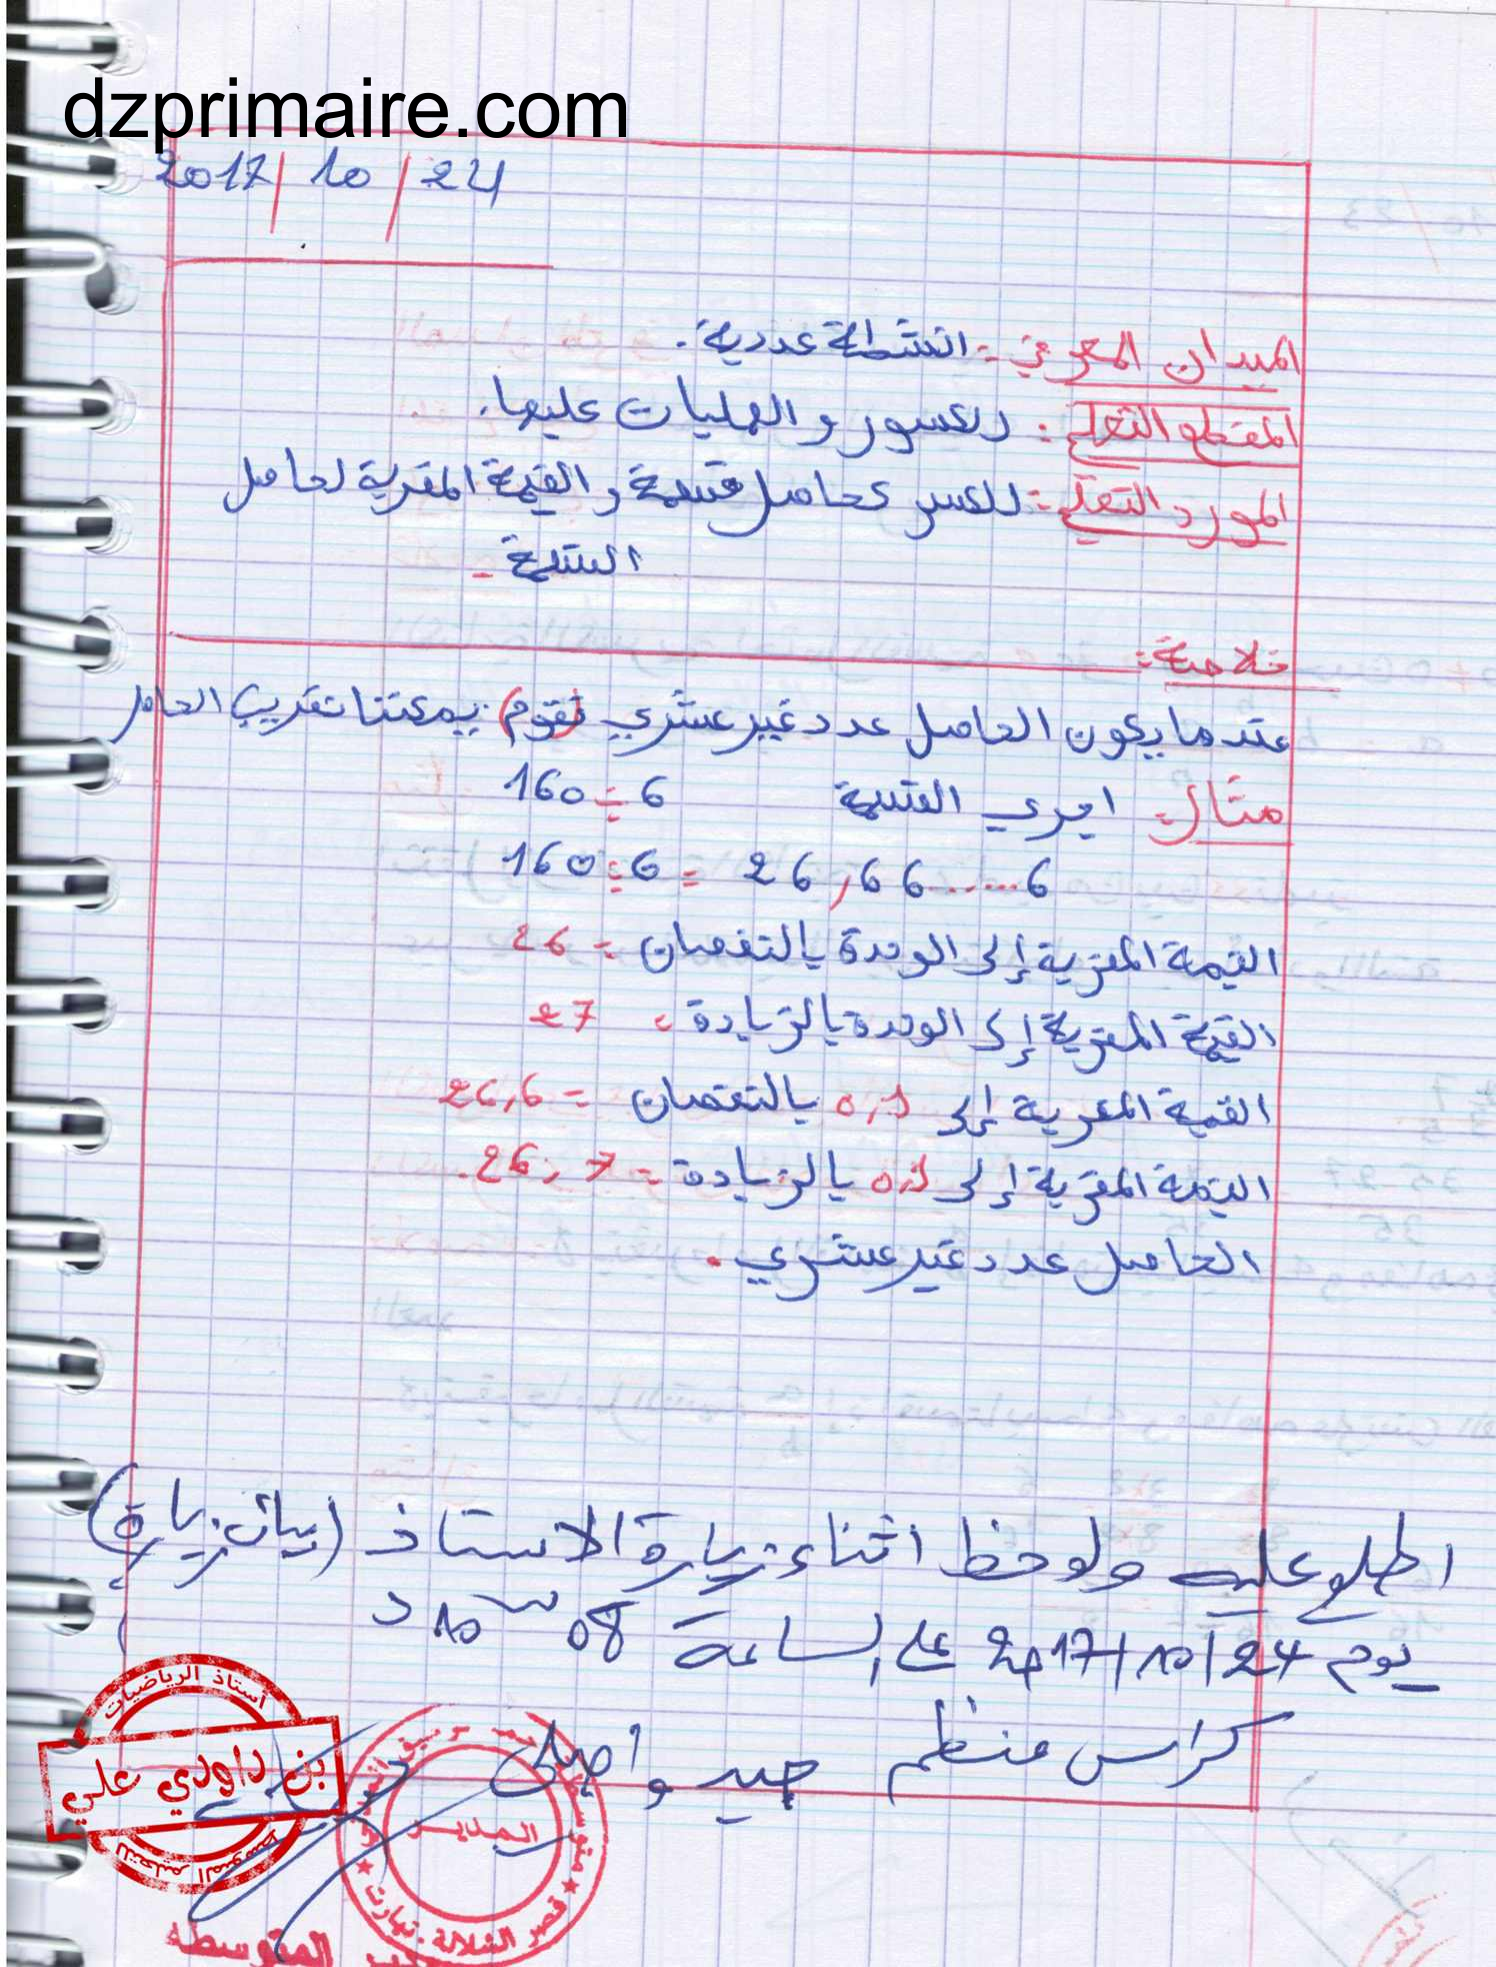 dzprimaire.com
2017/10/24
الميدان المعرفي: انشطة عددية.
المقطع التعلمي: الكسور والعمليات عليها.
المورد التعلمي: الكسر كحاصل قسمة والقيمة المقربة لحاصل
القسمة
خلاصة:
عندما يكون الحاصل عدد غير عشري (نقوم) يمكننا تقريب الحاصل
مثال: اجري القسمة 160 ÷ 6
160 ÷ 6 = 26,66......6
القيمة المقربة إلى الوحدة بالنقصان = 26
القيمة المقربة إلى الوحدة بالزيادة = 27
القيمة المقربة إلى 0,1 بالنقصان = 26,6
القيمة المقربة إلى 0,1 بالزيادة = 26,7.
الحاصل عدد غير عشري.
اطلع عليه ولوحظ اثناء زيارة الاستاذ (بيان زيارة)
يوم 2017/10/24 على الساعة 08 س 10 د
كراس منظم جيد واصلي
أستاذ الرياضيات
بن داودي علي
للتعليم المتوسط
المدير
قصر الشلالة. تيارت
المتوسطة